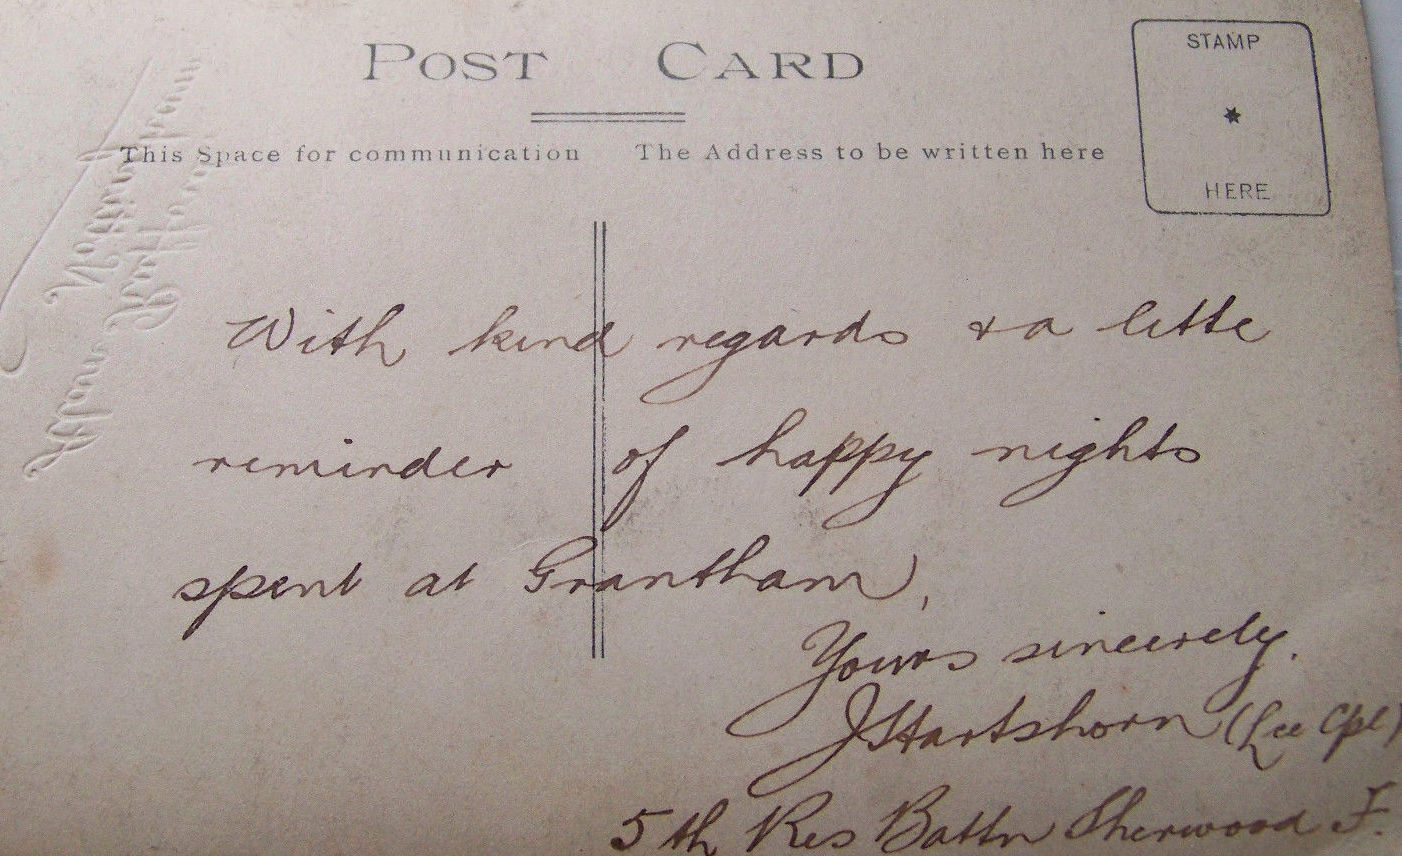 POST CARD
STAMP
HERE
This Space for communication
The Address to be written here
With kind regards & a little
reminder of happy nights
spent at Grantham,
Yours sincerely.
J Hartshorn (Lce Cpl)
5th Res Battn Sherwood F.